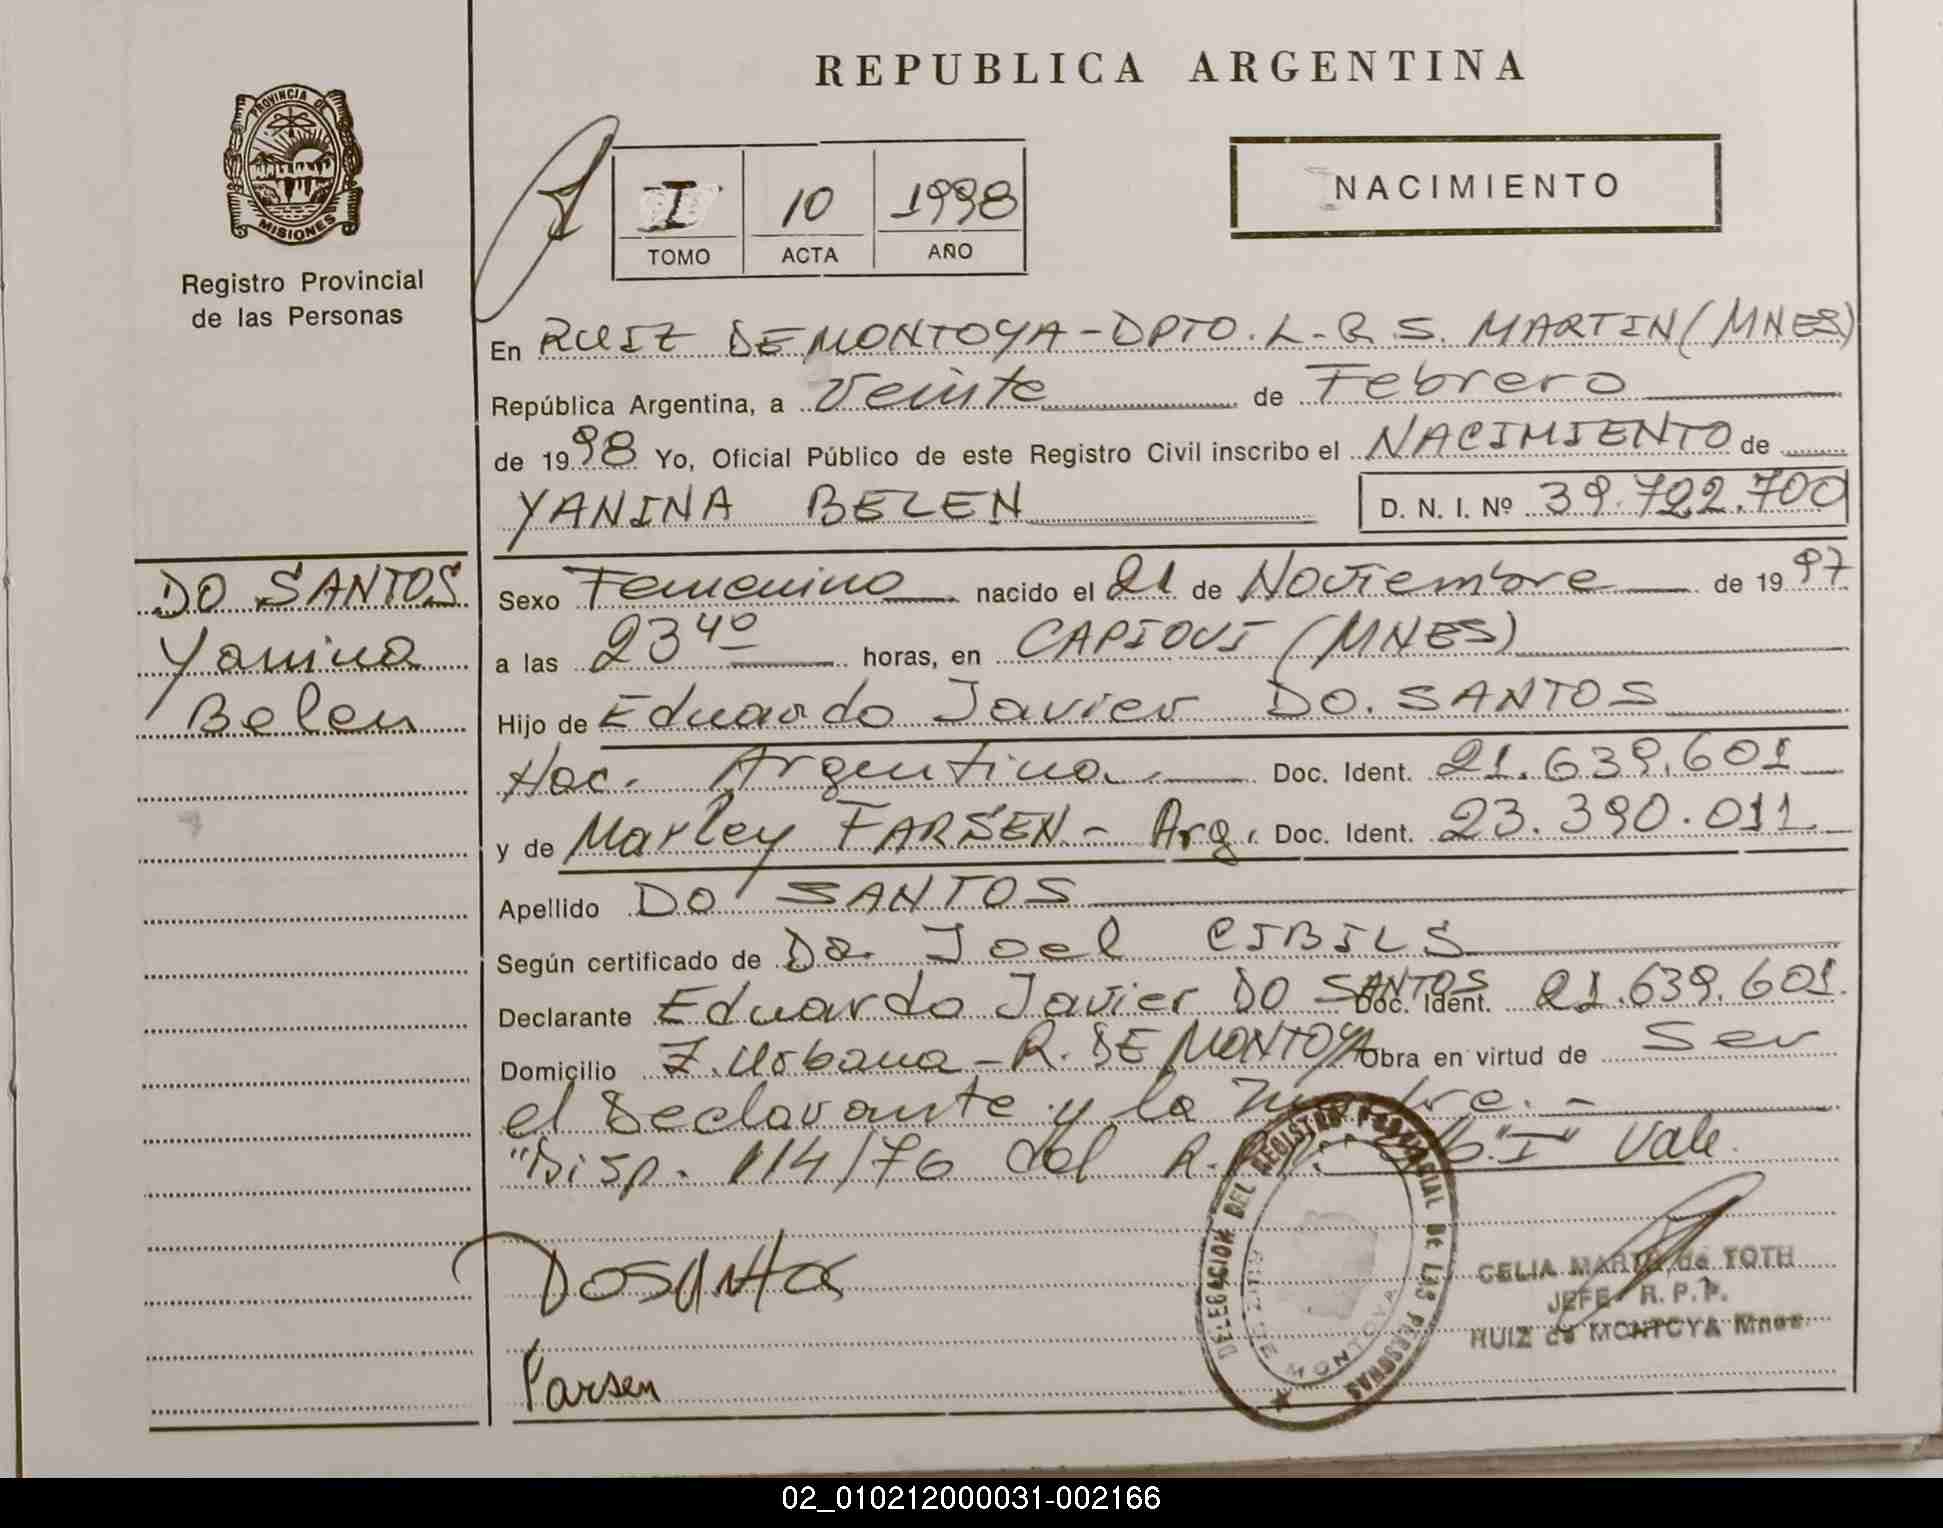 REPUBLICA ARGENTINA
PROVINCIA DE
MISIONES
Registro Provincial
de las Personas
I 10 1998
TOMO ACTA AÑO
NACIMIENTO
En RUIZ DE MONTOYA - DPTO. L. G. S. MARTIN (MNES)
República Argentina, a Veinte de Febrero
de 1998 Yo, Oficial Público de este Registro Civil inscribo el NACIMIENTO de
YANINA BELEN D. N. I. Nº 39.722.700
DO SANTOS
Yanina
Belen
Sexo Femenino nacido el 21 de Noviembre de 1997
a las 23 40 horas, en CAPIOVI (MNES)
Hijo de Eduardo Javier DO SANTOS
Nac. Argentina Doc. Ident. 21.639.601
y de Marley FARSEN - Arg. Doc. Ident. 23.390.011
Apellido DO SANTOS
Según certificado de Dr. Joel CIBILS
Declarante Eduardo Javier DO SANTOS Doc. Ident. 21.639.601
Domicilio Z. Urbana - R. DE MONTOYA Obra en virtud de Ser
el Declarante y la madre. -
"Disp. 114/76 del "I" Vale.
DOSANtos
Parsen
DELEGACION DEL REGISTRO PROVINCIAL DE LAS PERSONAS
RUIZ DE MONTOYA
CELIA MARTA de TOTH
JEFE R. P. P.
RUIZ de MONTOYA Mnes.
02_010212000031-002166